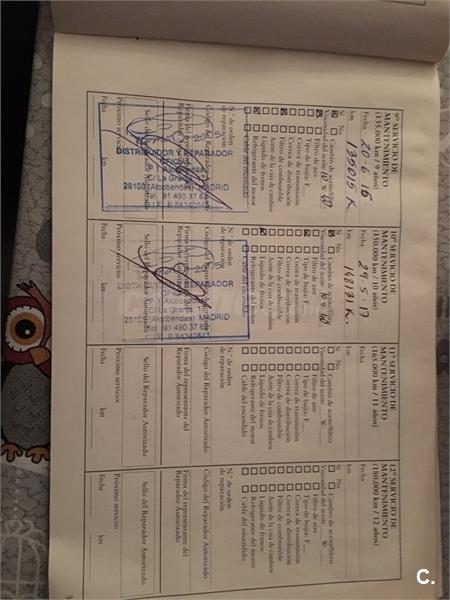 9º SERVICIO DE
MANTENIMIENTO
(135.000 km / 9 años)
Fecha 20-6-16
km 139015 K.
Si No
Cambio de aceite/filtro
Viscosidad del aceite 10 W 40
Filtro de aire
Tipo de bujía F
Correa de transmisión
Correa de distribución
Filtro de combustible
Aceite de la caja de cambios
Líquido de frenos
Refrigerante del motor
Cable del encendido
N.º de orden
de reparación:
Código del Reparador Autorizado
Firma del representante del
Reparador Autorizado
Sello del Reparador Autorizado
DISTRIBUIDOR Y REPARADOR
OFICIAL
La Granja
28108 (Alcobendas) MADRID
Próximo servicio:
Fecha km
10º SERVICIO DE
MANTENIMIENTO
(150.000 km / 10 años)
Fecha 29-5-17
km 148131 K.
Si No
Cambio de aceite/filtro
Viscosidad del aceite 10 W 40
Filtro de aire
Tipo de bujía F
Correa de transmisión
Correa de distribución
Filtro de combustible
Aceite de la caja de cambios
Líquido de frenos
Refrigerante del motor
Cable del encendido
N.º de orden
de reparación:
Código del Reparador Autorizado
Firma del representante del
Reparador Autorizado
REPARADOR
La Granja
(Alcobendas) MADRID
Próximo servicio:
Fecha km
11º SERVICIO DE
MANTENIMIENTO
(165.000 km / 11 años)
Fecha
km
Si No
Cambio de aceite/filtro
Viscosidad del aceite W
Filtro de aire
Tipo de bujía F
Correa de transmisión
Correa de distribución
Filtro de combustible
Aceite de la caja de cambios
Líquido de frenos
Refrigerante del motor
Cable del encendido
N.º de orden
de reparación:
Código del Reparador Autorizado
Firma del representante del
Reparador Autorizado
Sello del Reparador Autorizado
Próximo servicio:
Fecha km
12º SERVICIO DE
MANTENIMIENTO
(180.000 km / 12 años)
Fecha
km
Si No
Cambio de aceite/filtro
Viscosidad del aceite W
Filtro de aire
Tipo de bujía F
Correa de transmisión
Correa de distribución
Filtro de combustible
Aceite de la caja de cambios
Líquido de frenos
Refrigerante del motor
Cable del encendido
N.º de orden
de reparación:
Código del Reparador Autorizado
Firma del representante del
Reparador Autorizado
Sello del Reparador Autorizado
Próximo servicio:
Fecha km
C.